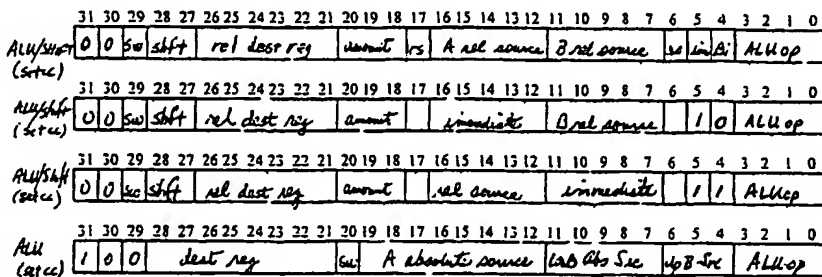 31 30 29 28 27 26 25 24 23 22 21 20 19 18 17 16 15 14 13 12 11 10 9 8 7 6 5 4 3 2 1 0
ALU/SHIFT 0 0 sw shft rel dest reg amount rs A rel source B rel source im Bi ALU op
(setcc)
31 30 29 28 27 26 25 24 23 22 21 20 19 18 17 16 15 14 13 12 11 10 9 8 7 6 5 4 3 2 1 0
ALU/shift 0 0 sw shft rel dest reg amount immediate B rel source 1 0 ALU op
(setcc)
31 30 29 28 27 26 25 24 23 22 21 20 19 18 17 16 15 14 13 12 11 10 9 8 7 6 5 4 3 2 1 0
ALU/Shift 0 0 shft rel dest reg amount rel source immediate 1 1 ALU op
(setcc)
31 30 29 28 27 26 25 24 23 22 21 20 19 18 17 16 15 14 13 12 11 10 9 8 7 6 5 4 3 2 1 0
ALU 1 0 0 dest reg A absolute source LoB Abs Src Up B Src ALU op
(setcc)